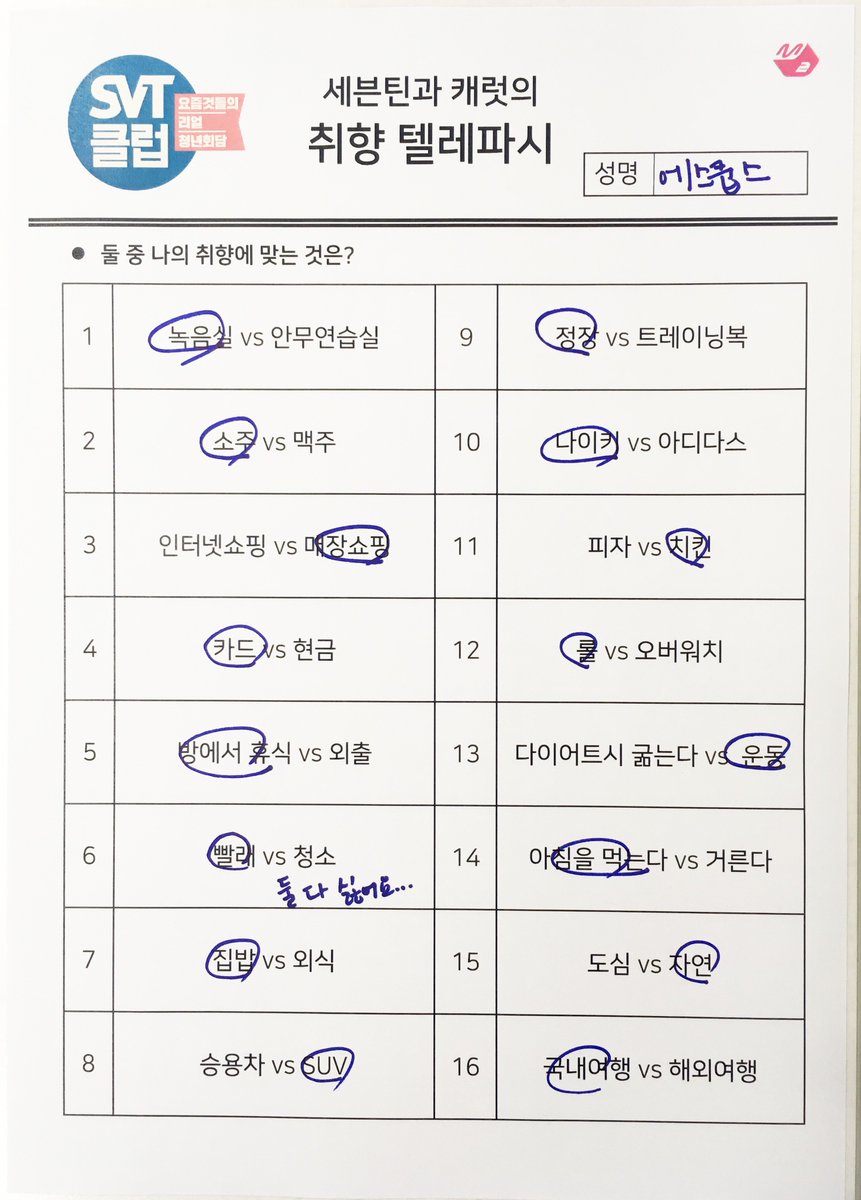 SVT
클럽
요즘것들의
리얼
청년회담
M2
세븐틴과 캐럿의
취향 텔레파시
성명 에스쿱스
● 둘 중 나의 취향에 맞는 것은?
1 녹음실 vs 안무연습실
2 소주 vs 맥주
3 인터넷쇼핑 vs 매장쇼핑
4 카드 vs 현금
5 방에서 휴식 vs 외출
6 빨래 vs 청소
둘 다 싫어요...
7 집밥 vs 외식
8 승용차 vs SUV
9 정장 vs 트레이닝복
10 나이키 vs 아디다스
11 피자 vs 치킨
12 롤 vs 오버워치
13 다이어트시 굶는다 vs 운동
14 아침을 먹는다 vs 거른다
15 도심 vs 자연
16 국내여행 vs 해외여행